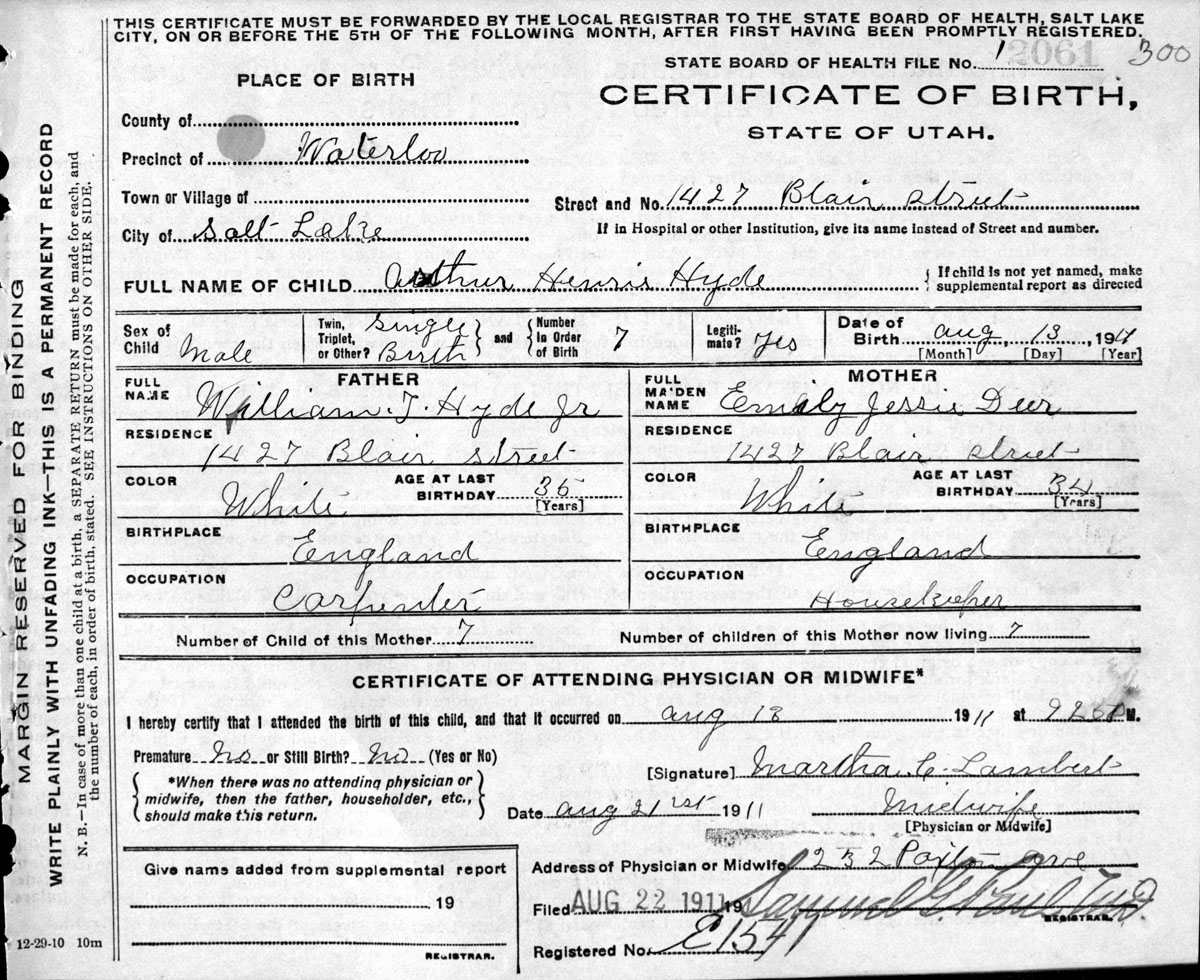 THIS CERTIFICATE MUST BE FORWARDED BY THE LOCAL REGISTRAR TO THE STATE BOARD OF HEALTH, SALT LAKE
CITY, ON OR BEFORE THE 5TH OF THE FOLLOWING MONTH, AFTER FIRST HAVING BEEN PROMPTLY REGISTERED.
STATE BOARD OF HEALTH FILE No. 12061 300
PLACE OF BIRTH
CERTIFICATE OF BIRTH,
STATE OF UTAH.
County of
Precinct of Waterloo
Town or Village of
Street and No. 1427 Blair Street
City of Salt Lake
If in Hospital or other Institution, give its name instead of Street and number.
FULL NAME OF CHILD Arthur Henris Hyde
If child is not yet named, make
supplemental report as directed
Sex of Child Male
Twin, Triplet, or Other? Single Birth
and Number In Order of Birth 7
Legitimate? Yes
Date of Birth Aug 13, 1911
[Month] [Day] [Year]
FATHER
FULL NAME William. T. Hyde Jr
RESIDENCE 1427 Blair Street
COLOR White
AGE AT LAST BIRTHDAY 35 [Years]
BIRTHPLACE England
OCCUPATION Carpenter
MOTHER
FULL MAIDEN NAME Emily Jessie Deer
RESIDENCE 1427 Blair Street
COLOR White
AGE AT LAST BIRTHDAY 34 [Years]
BIRTHPLACE England
OCCUPATION Housekeeper
Number of Child of this Mother 7
Number of children of this Mother now living 7
CERTIFICATE OF ATTENDING PHYSICIAN OR MIDWIFE*
I hereby certify that I attended the birth of this child, and that it occurred on Aug 13 1911 at M.
Premature No or Still Birth? No (Yes or No)
*When there was no attending physician or
midwife, then the father, householder, etc.,
should make this return.
[Signature] Martha. C. Lambert
Date Aug 21st 1911
Midwife
[Physician or Midwife]
Give name added from supplemental report
19
REGISTRAR.
12-29-10 10m
Address of Physician or Midwife 232 Paxton ave
Filed AUG 22 1911 19 Samuel G. Paul M.D.
REGISTRAR.
Registered No. E1541
MARGIN RESERVED FOR BINDING
WRITE PLAINLY WITH UNFADING INK—THIS IS A PERMANENT RECORD
N. B.—In case of more than one child at a birth, a SEPARATE RETURN must be made for each, and
the number of each, in order of birth, stated. SEE INSTRUCTIONS ON OTHER SIDE.